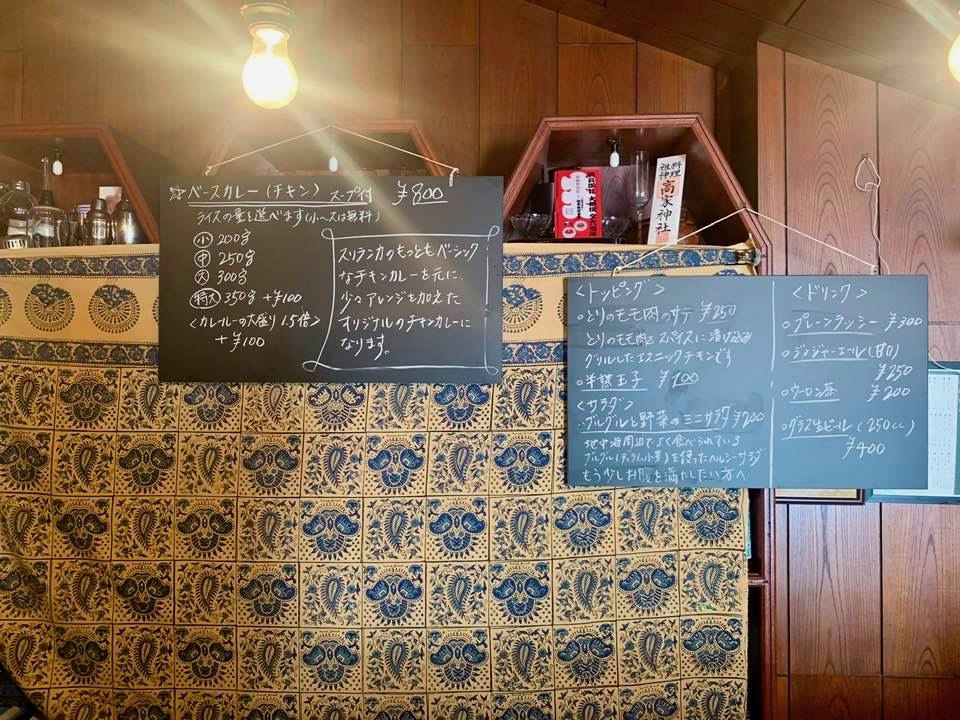 ☆ベースカレー(チキン) スープ付 ¥800
ライスの量も選べます(小〜大は無料)
小 200g
中 250g
大 300g
特大 350g +¥100
<カレールーの大盛り 1.5倍>
+¥100
スリランカのもっともベーシック
なチキンカレーを元に、
少々アレンジを加えた
オリジナルのチキンカレーに
なります。
料理
祖神
高家神社
<トッピング>
○とりのモモ肉のサテ ¥250
とりのモモ肉をスパイスに漬け込み
グリルしたエスニックチキンです
○半熟玉子 ¥100
<サラダ>
○ブルグルと野菜のミニサラダ ¥200
地中海周辺でよく食べられている
ブルグル(デュラム小麦)を使ったヘルシーサラダ
もう少しお腹を満たしたい方へ
<ドリンク>
○プレーンラッシー ¥300
○ジンジャーエール(甘口)
¥250
○ウーロン茶 ¥200
○グラス生ビール(250cc)
¥400